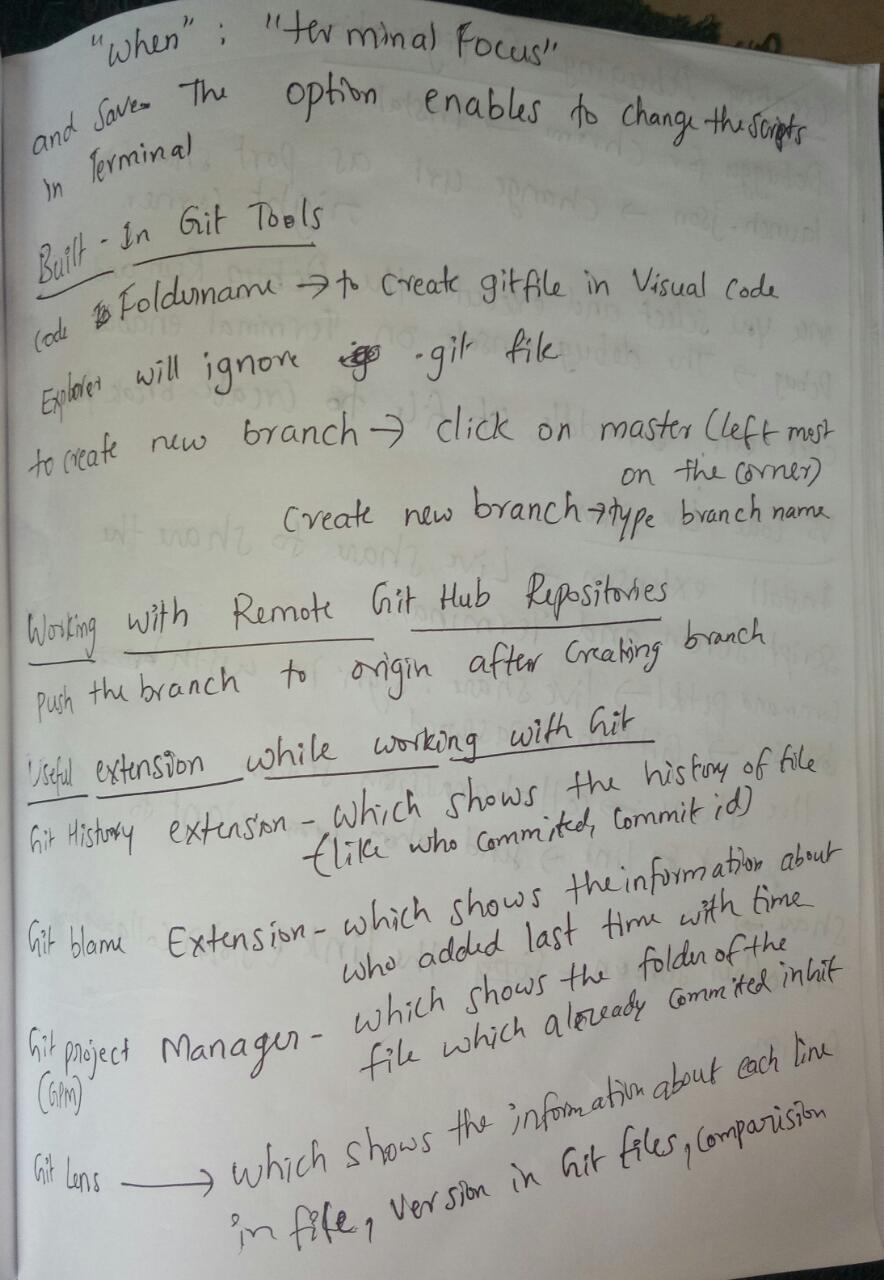 "when" : "terminal Focus"
and save. The option enables to change the scripts
in Terminal
Built - In Git Tools
code Foldername → to create gitfile in Visual Code
Explorer will ignore .git file
to create new branch → click on master (left most
on the corner)
Create new branch → type branch name
Working with Remote Git Hub Repositories
push the branch to origin after Creating branch
Useful extension while working with Git
Git History extension - which shows the history of file
(like who commited, commit id)
Git blame Extension - which shows the information about
who added last time with time
Git project Manager - which shows the folder of the
(GPM) file which already commited in Git
Git Lens → which shows the information about each line
in file, version in Git files, comparision